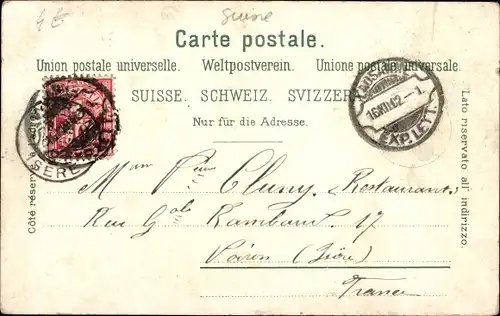 4 €
Suisse
Carte postale.
Union postale universelle. Weltpostverein. Unione postale universale.
SUISSE. SCHWEIZ. SVIZZERA
Nur für die Adresse.
Côté réservé
Lato riservato all' indirizzo.
16 XII 02
EXP. LETT.
Cluny, Restaurant,
Rue Gal Rambaud 17
Voiron (Isère)
France